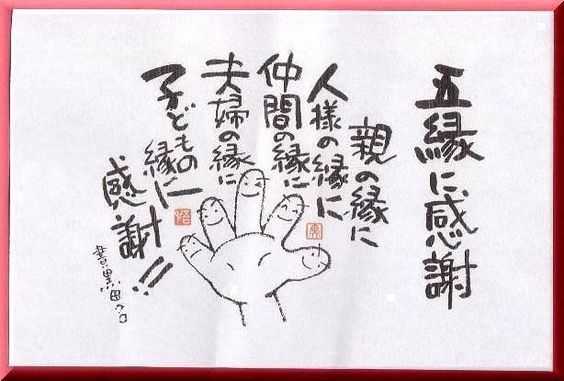 五縁に感謝
親の縁に
人様の縁に
仲間の縁に
夫婦の縁に
子どもの
縁に
感謝!!
書黒田クロ